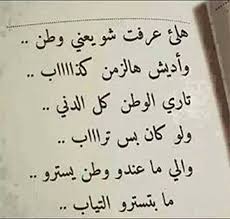 هلئ عرفت شو يعني وطن ..
وأديش هالزمن كذاااب ..
تاري الوطن كل الدني ..
ولو كان بس ترااااب ..
والي ما عندو وطن يسترو ..
ما بتسترو التياب ..